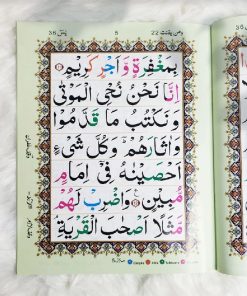 يٰسٓ 36 5 ومن يقنت 22
بِمَغْفِرَةٍ وَّاَجْرٍ كَرِيْمٍ ۝۱۱
اِنَّا نَحْنُ نُحْيِ الْمَوْتٰى
وَنَكْتُبُ مَا قَدَّمُوْا
وَاٰثَارَهُمْ ؕ وَكُلَّ شَيْءٍ
اَحْصَيْنٰهُ فِيْۤ اِمَامٍ
مُّبِيْنٍ ۝۱۲ وَاضْرِبْ لَهُمْ
مَّثَلًا اَصْحٰبَ الْقَرْيَةِ ۘ